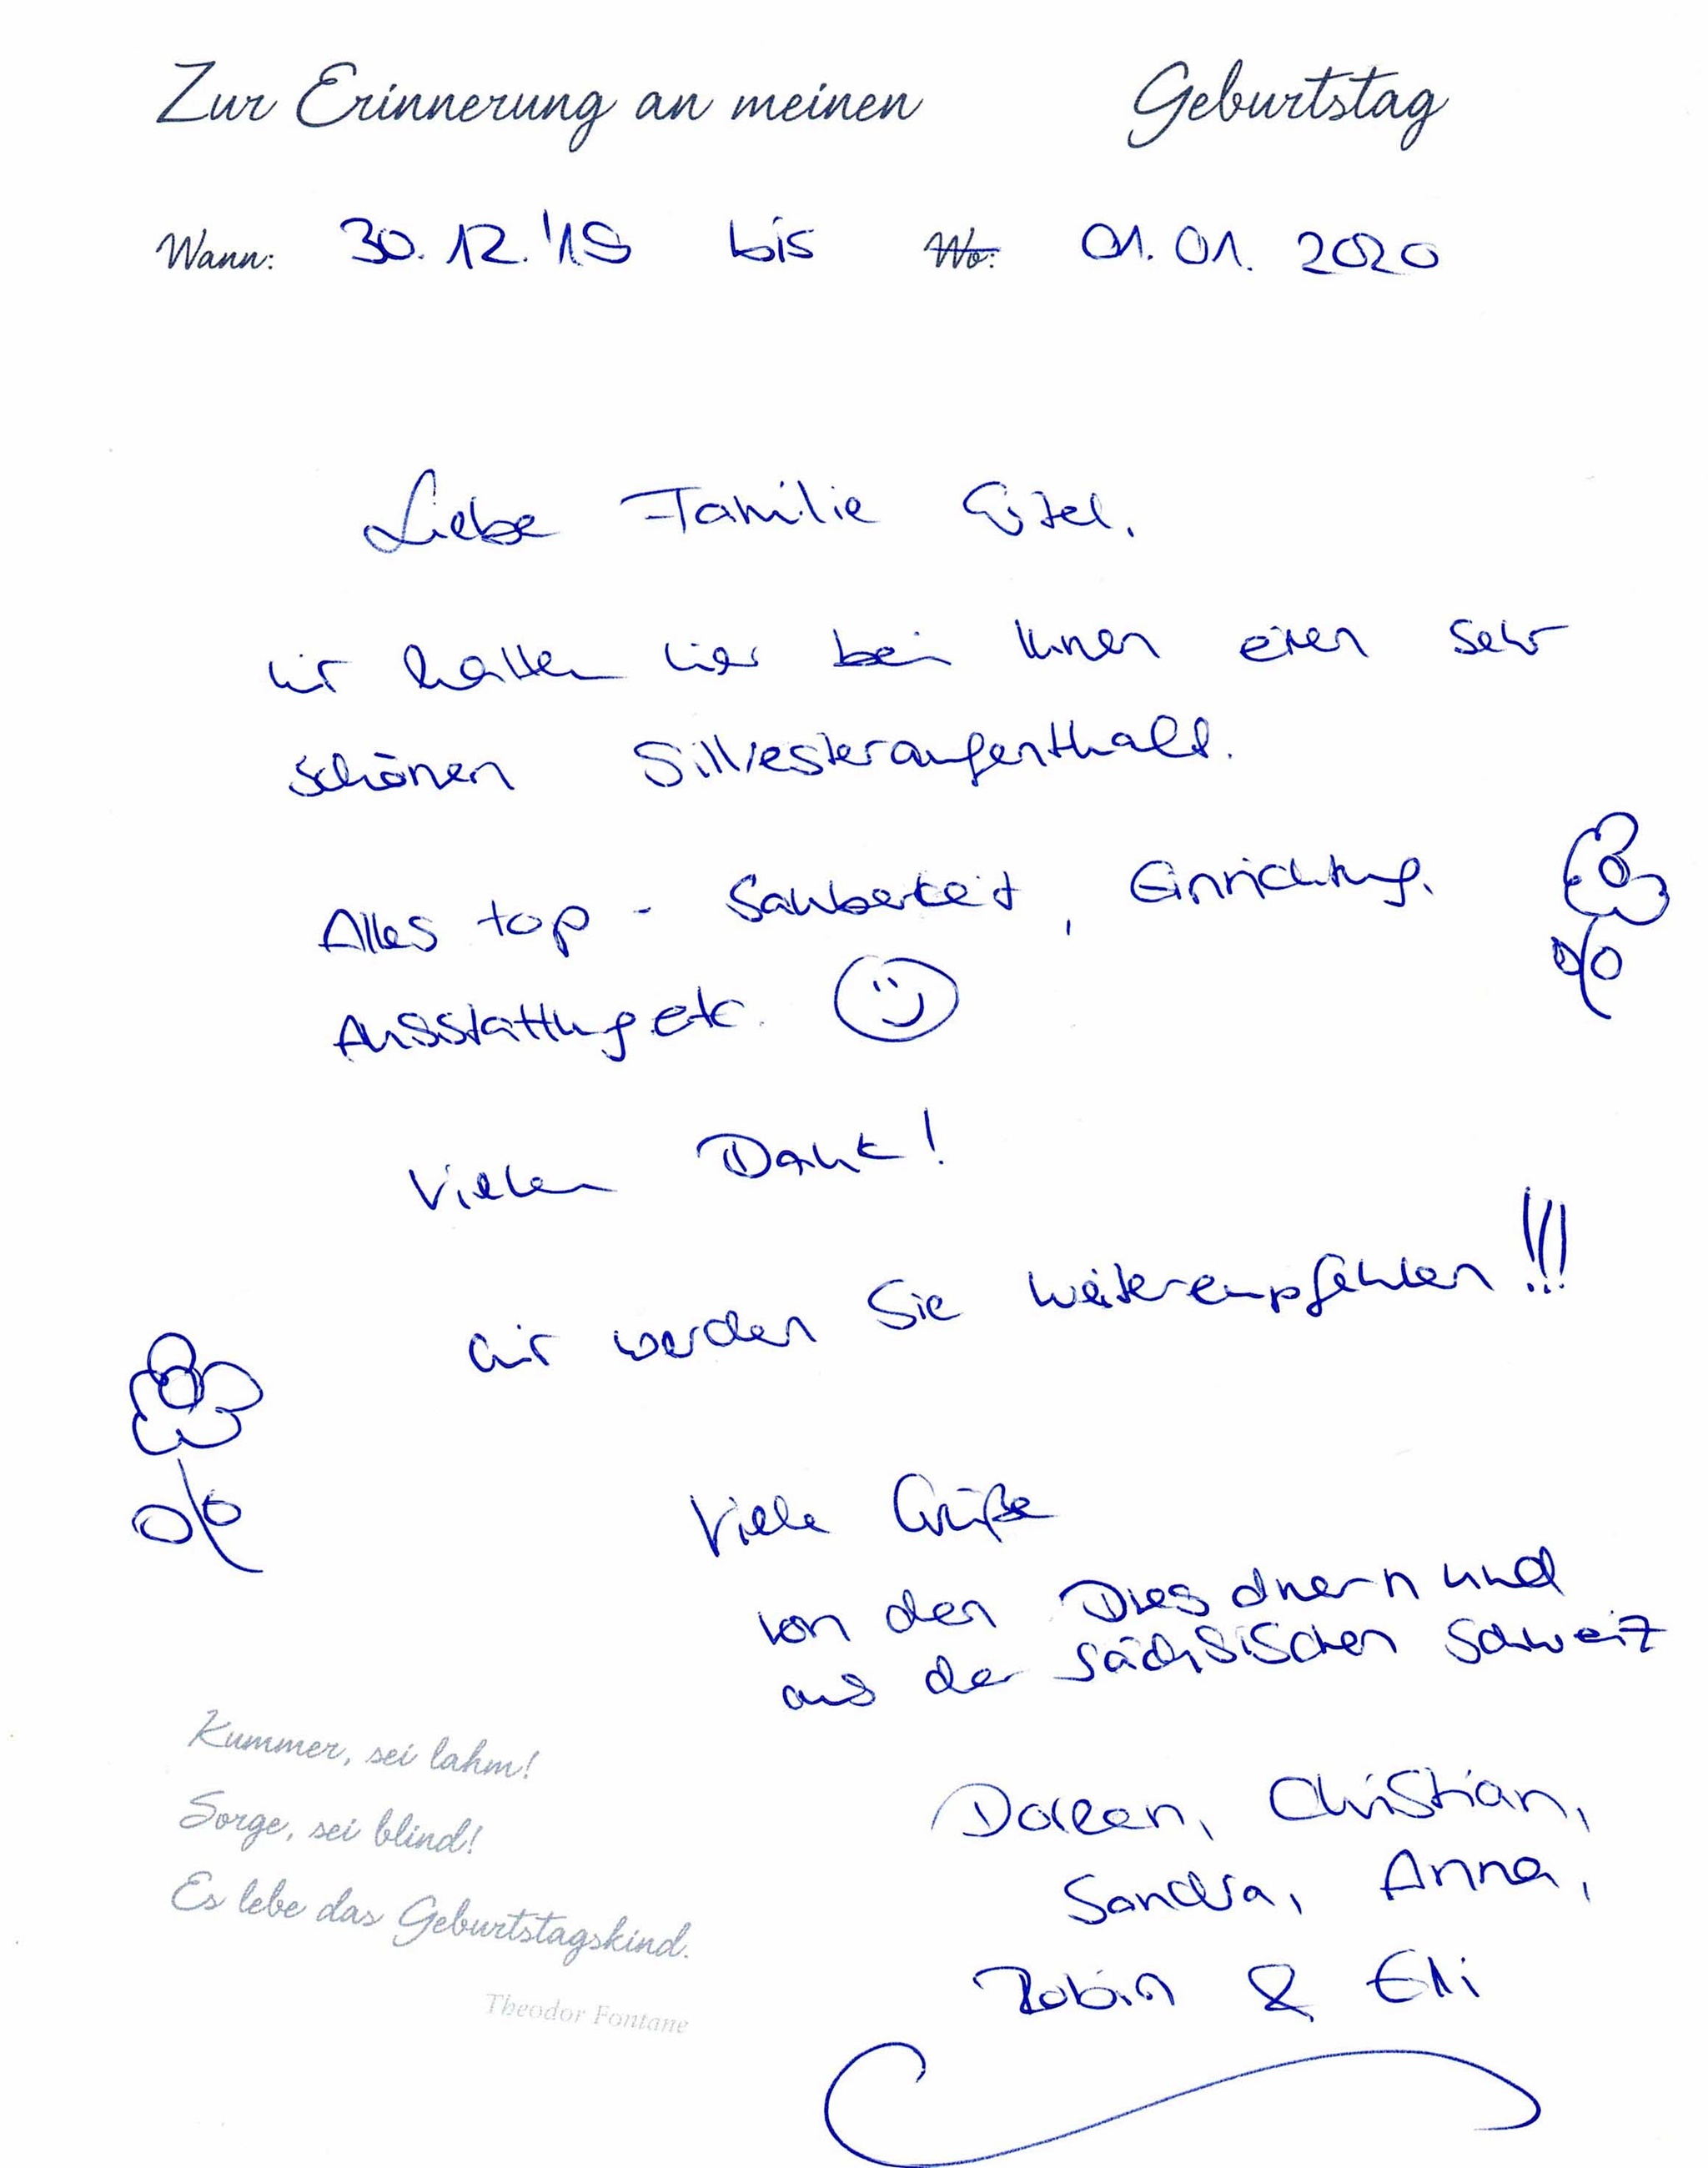 Zur Erinnerung an meinen Geburtstag
Wann: 30.12.'19 bis Wo: 01.01.2020
Liebe Familie Eitel,
wir hatten hier bei Ihnen einen sehr
schönen Silvesteraufenthalt.
Alles top - Sauberkeit, Einrichtung,
Ausstattung etc.
Vielen Dank!
Wir werden Sie weiterempfehlen!!!
Viele Grüße
von den Dresdnern und
aus der sächsischen Schweiz
Kummer, sei lahm!
Sorge, sei blind!
Es lebe das Geburtstagskind.
Theodor Fontane
Doreen, Christian,
Sandra, Anna,
Robin & Elli